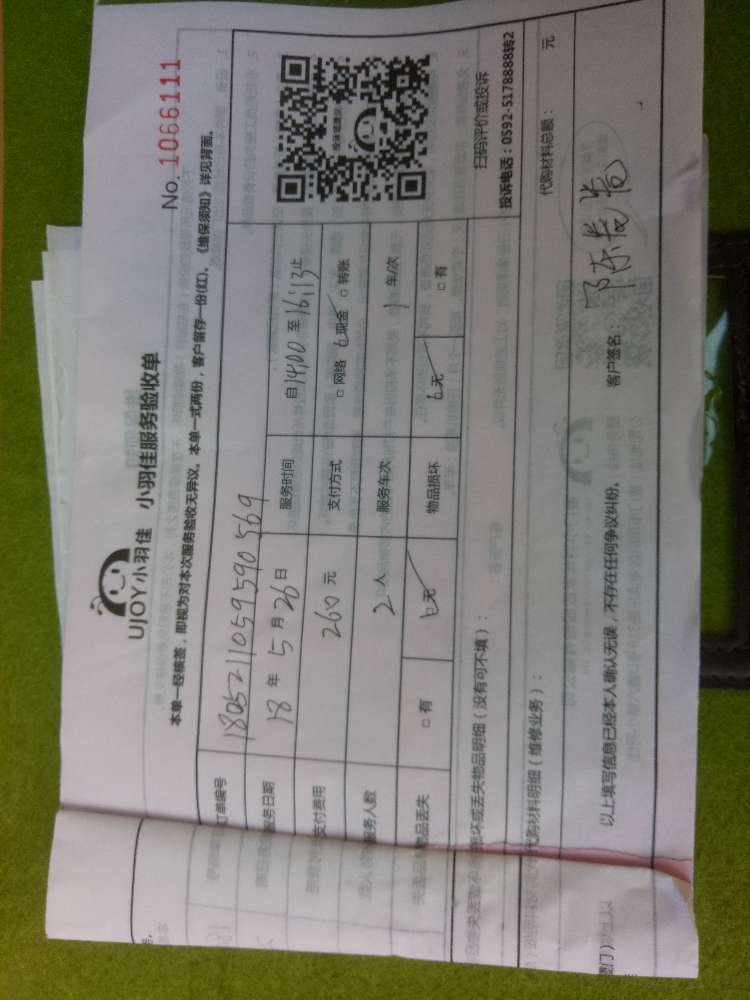 No. 10661111
UJOY小羽佳 小羽佳服务验收单
本单一经核签，即视为对本次服务验收无异议。本单一式两份，客户留存一份(红)。《维保须知》详见背面。
订单编号 180521105959 0569
服务日期 18 年 5 月 26 日 服务时间 自 14:00 至 16:13 止
支付费用 260 元 支付方式 □ 网络 □ 现金 □ 转账
服务人数 2 人 服务车次 1 车/次
物品丢失 □ 有 □ 无 物品损坏 □ 无 □ 有
投诉或建议
扫码评价或投诉
投诉电话：0592-5178888转2
损坏或丢失物品明细（没有可不填）：
代购材料明细（维修业务）： 代购材料总额： 元
以上填写信息已经本人确认无误，不存在任何争议纠纷。 客户签名：